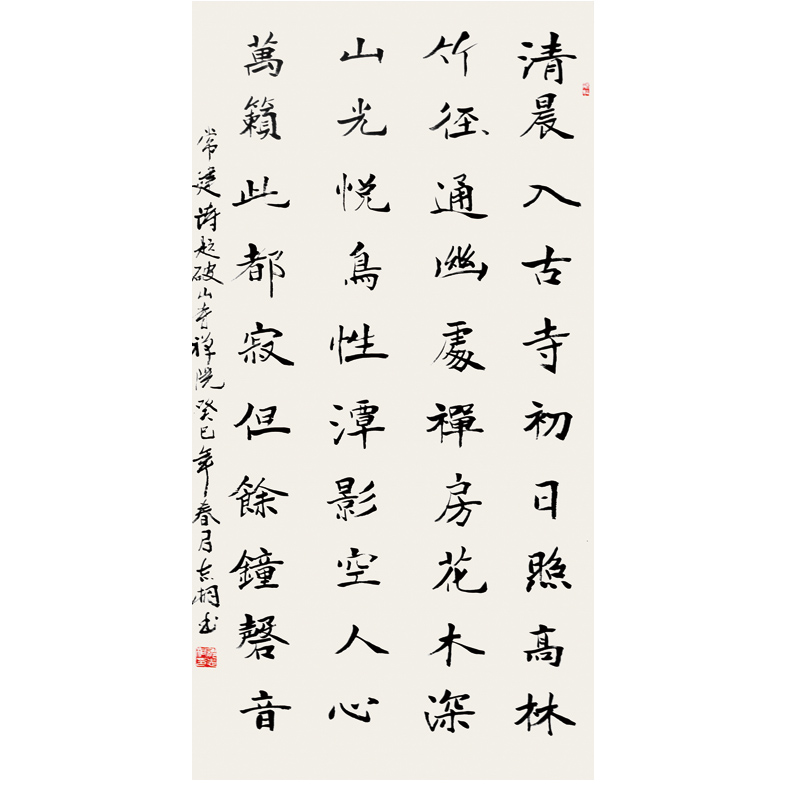 清晨入古寺初日照高林
竹径通幽處禪房花木深
山光悦鳥性潭影空人心
萬籟此都寂但餘鐘磬音
常建诗题破山寺禅院癸巳年春月志桐书